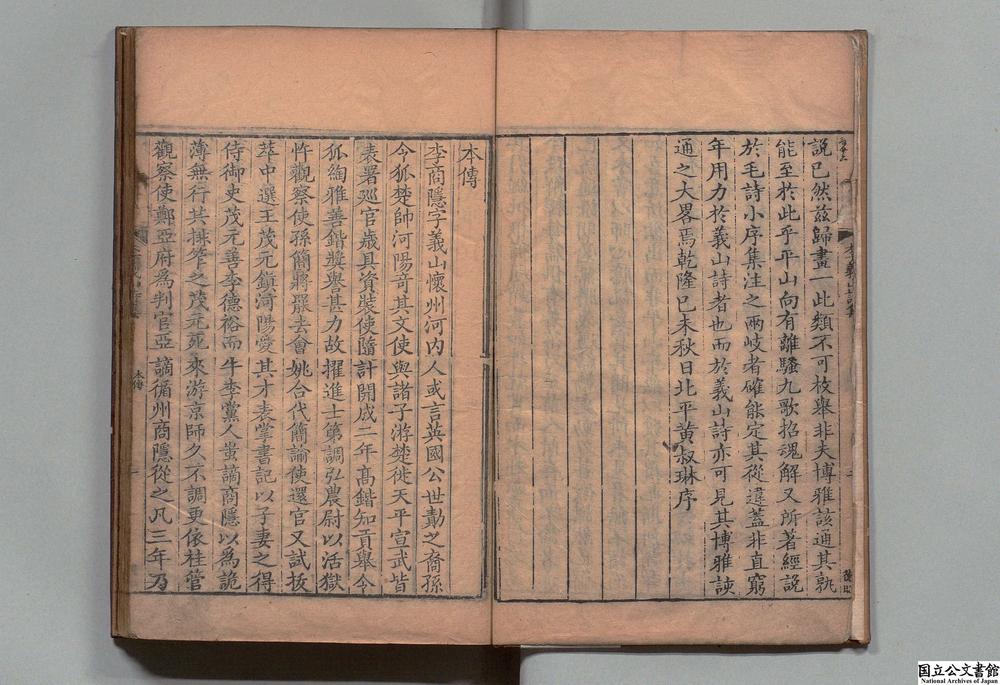 說已然茲歸畫一此類不可枚舉非夫博雅該通其孰
能至於此乎平山向有離騷九歌招魂解又所著經說
於毛詩小序集注之兩岐者確能定其從違蓋非直窮
年用力於義山詩者也而於義山詩亦可見其博雅該
通之大畧焉乾隆己未秋日北平黃叔琳序
本傳
李商隱字義山懷州河内人或言英國公世勣之裔孫
令狐楚帥河陽奇其文使與諸子游楚徙天平宣武皆
表署巡官歲具資裝使隨計開成二年高鍇知貢舉令
狐綯雅善鍇獎譽甚力故擢進士第調弘農尉以活獄
忤觀察使孫簡將罷去會姚合代簡諭使還官又試拔
萃中選王茂元鎮河陽愛其才表掌書記以子妻之得
侍御史茂元善李德裕而牛李黨人蚩謫商隱以為詭
薄無行共排笮之茂元死來游京師久不調更依桂管
觀察使鄭亞府為判官亞謫循州商隱從之凡三年乃
本傳
一
国立公文書館
National Archives of Japan